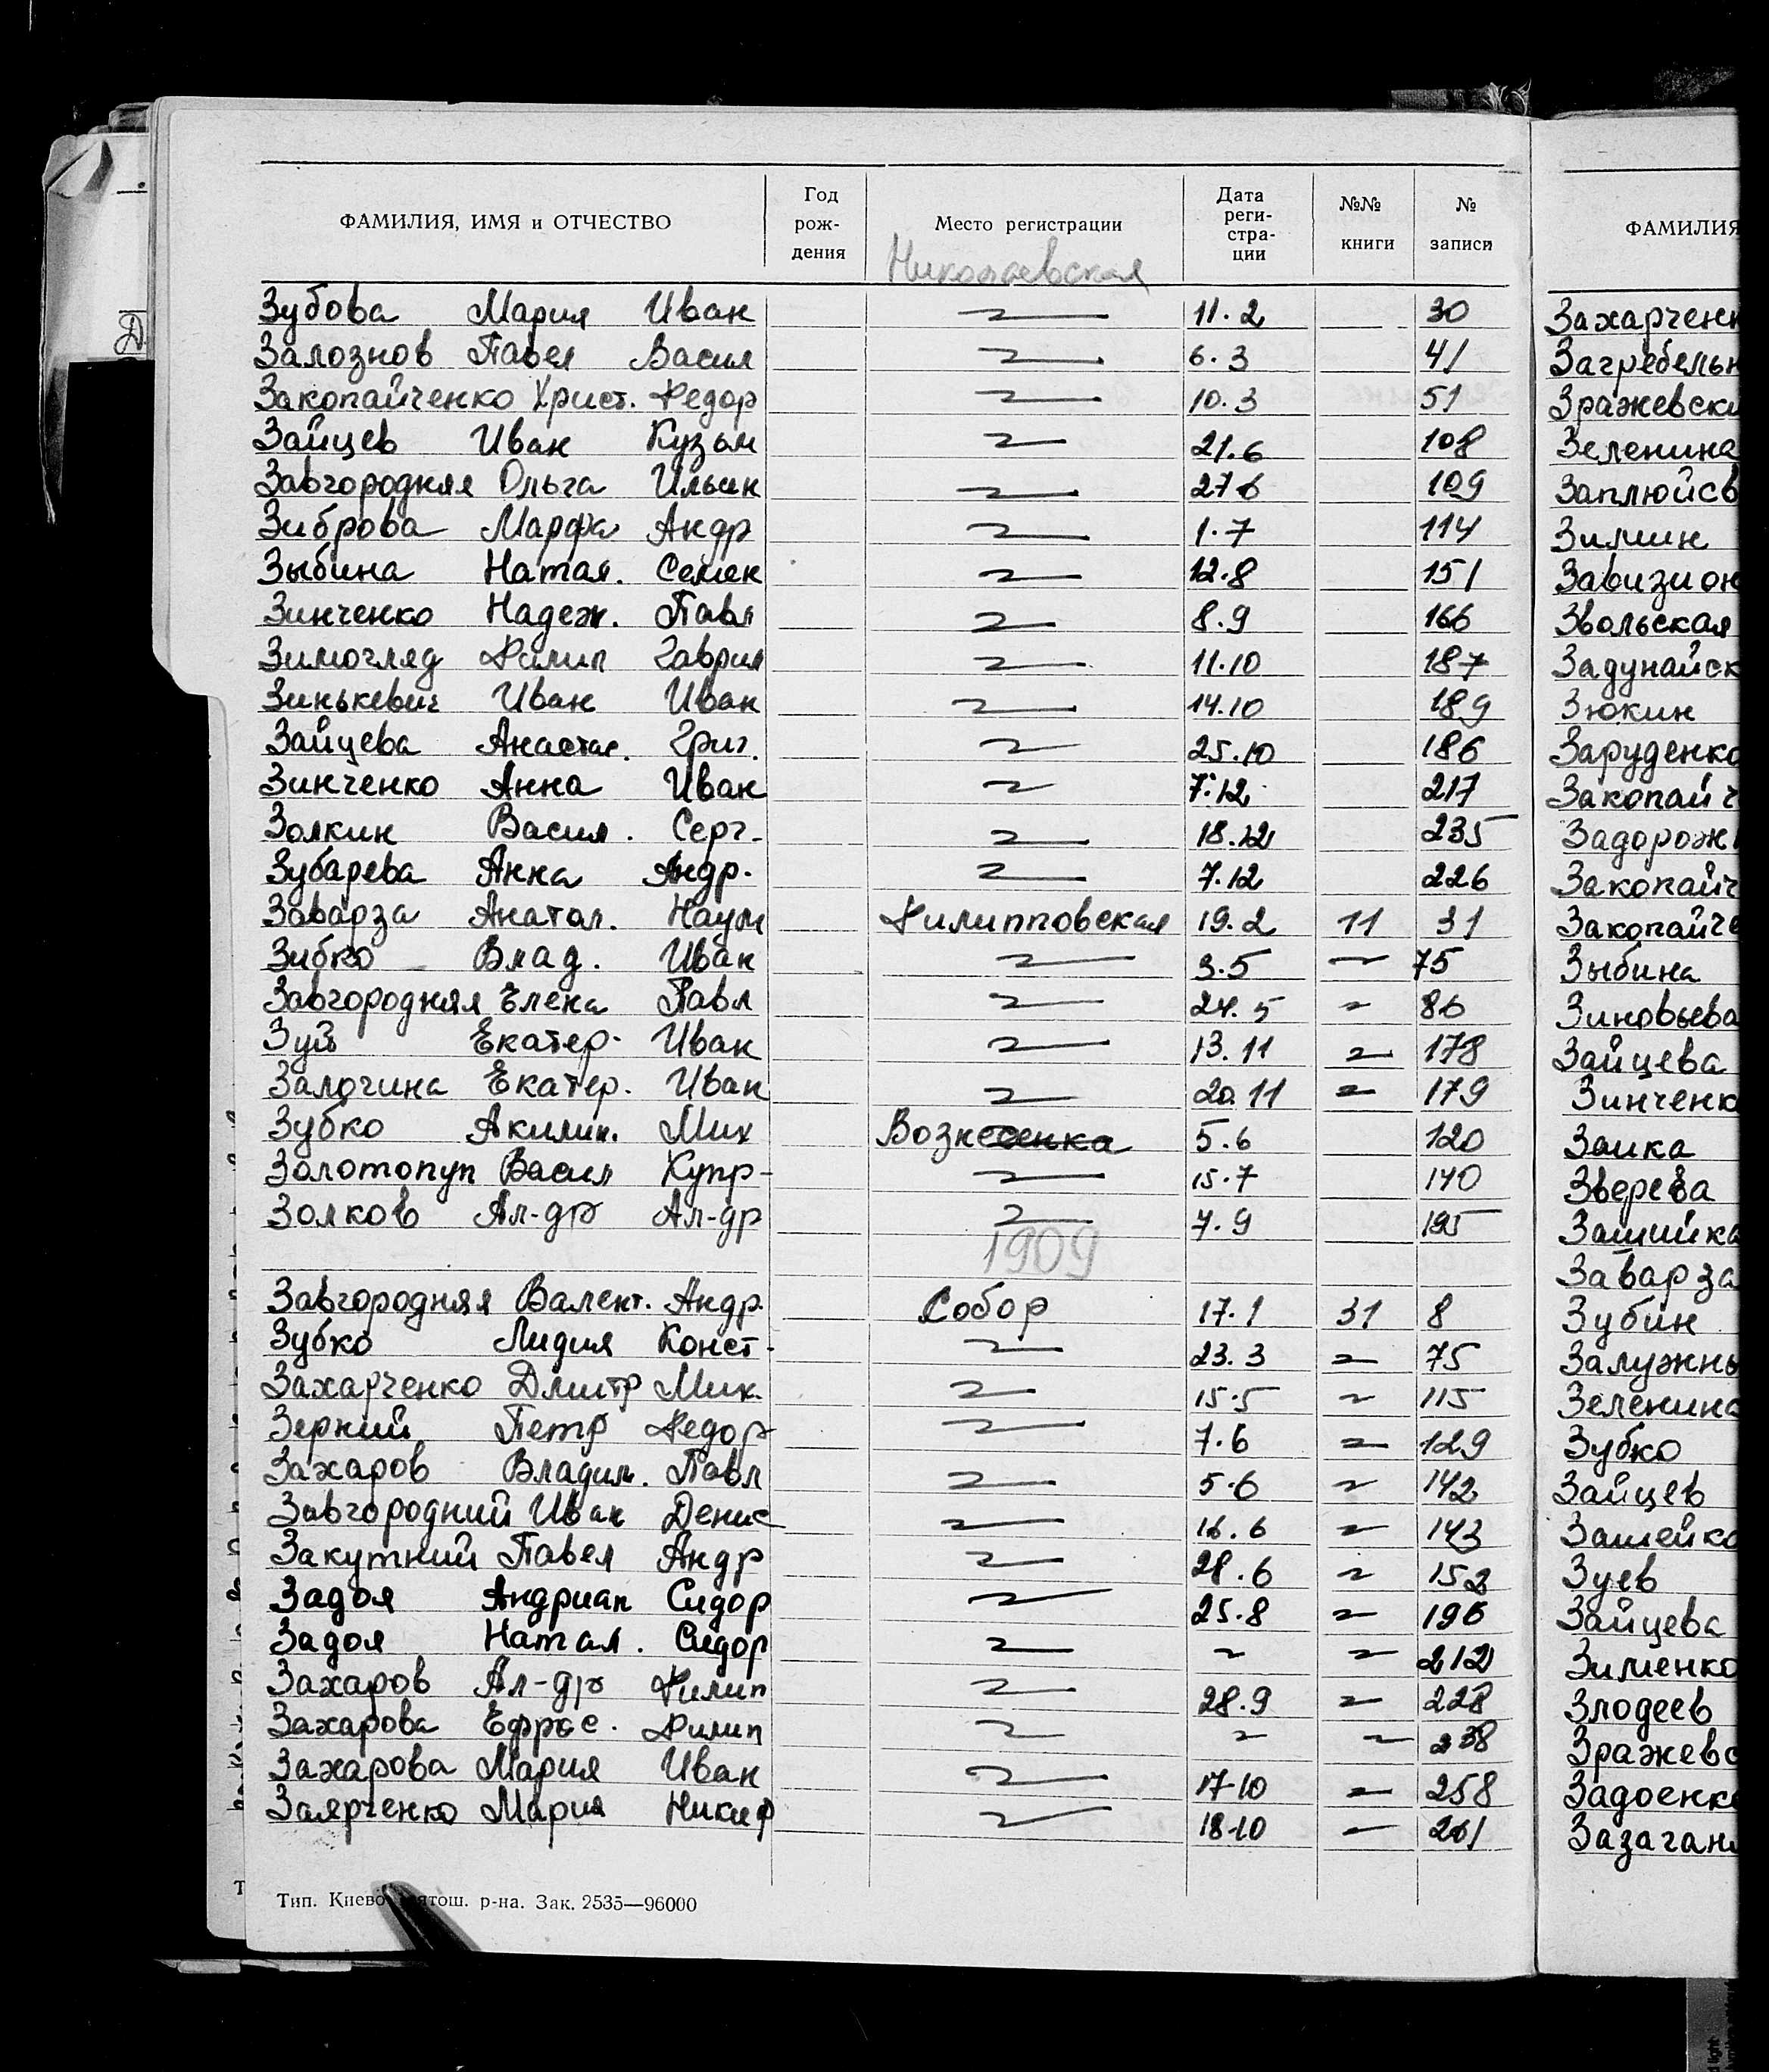 ФАМИЛИЯ, ИМЯ и ОТЧЕСТВО Год рож- дения Место регистрации Дата реги- стра- ции №№ книги № записи
Николаевская
Зубова Мария Иван 11.2 30
Залознов Павел Васил 6.3 41
Закопайченко Христ. Федор 10.3 51
Зайцев Иван Кузьм 21.6 108
Завгородняя Ольга Ильин 27 6 109
Зиброва Марфа Андр 1.7 114
Зыбина Натал. Семен 12.8 151
Зинченко Надеж. Павл 8.9 166
Зимогляд Филип Гаврил 11.10 187
Зинькевич Иван Иван 14.10 189
Зайцева Анастас. Григ. 25.10 186
Зинченко Анна Иван 7.12 217
Золкин Васил. Серг. 18.12 235
Зубарева Анна Андр. 7.12 226
Заварза Анатол. Наум Филипповская 19.2 11 31
Зибко Влад. Иван 3.5 75
Завгородняя Елена Павл 24.5 86
Зуй Екатер. Иван 13.11 178
Залочина Екатер. Иван 20.11 179
Зубко Акилин. Мих Вознесенка 5.6 120
Золотопуп Васил Купр- 15.7 140
Золков Ал-др Ал-др 7.9 195
1909
Завгородняя Валент. Андр. Собор 17.1 31 8
Зубко Лидия Конст. 23.3 75
Захарченко Дмитр Мих. 15.5 115
Зерний Петр Федор 7.6 129
Захаров Владим. Павл 5.6 142
Завгородний Иван Денис 16.6 143
Закутний Павел Андр 28.6 152
Задоя Андриан Сидор 25.8 196
Задоя Натал. Сидор 212
Захаров Ал-др Филип 28.9 228
Захарова Ефрос. Филип 238
Захарова Мария Иван 17-10 258
Заярченко Мария Никиф 18-10 261
Тип. Киево ятош. р-на. Зак. 2535—96000
ФАМИЛИЯ
Захарченк
Загребельн
Зражевски
Зеленина
Заплюйсв
Зимин
Завизион
Звольская
Задунайск
Зюкин
Заруденко
Закопайч
Задорожн
Закопайч
Закопайче
Зыбина
Зиновьева
Зайцева
Зинченко
Заика
Зверева
Зашийка
Заварза
Зубин
Залужны
Зеленина
Зубко
Зайцев
Зашейко
Зуев
Зайцева
Зименко
Злодеев
Зражевс
Задоенко
Зазаган